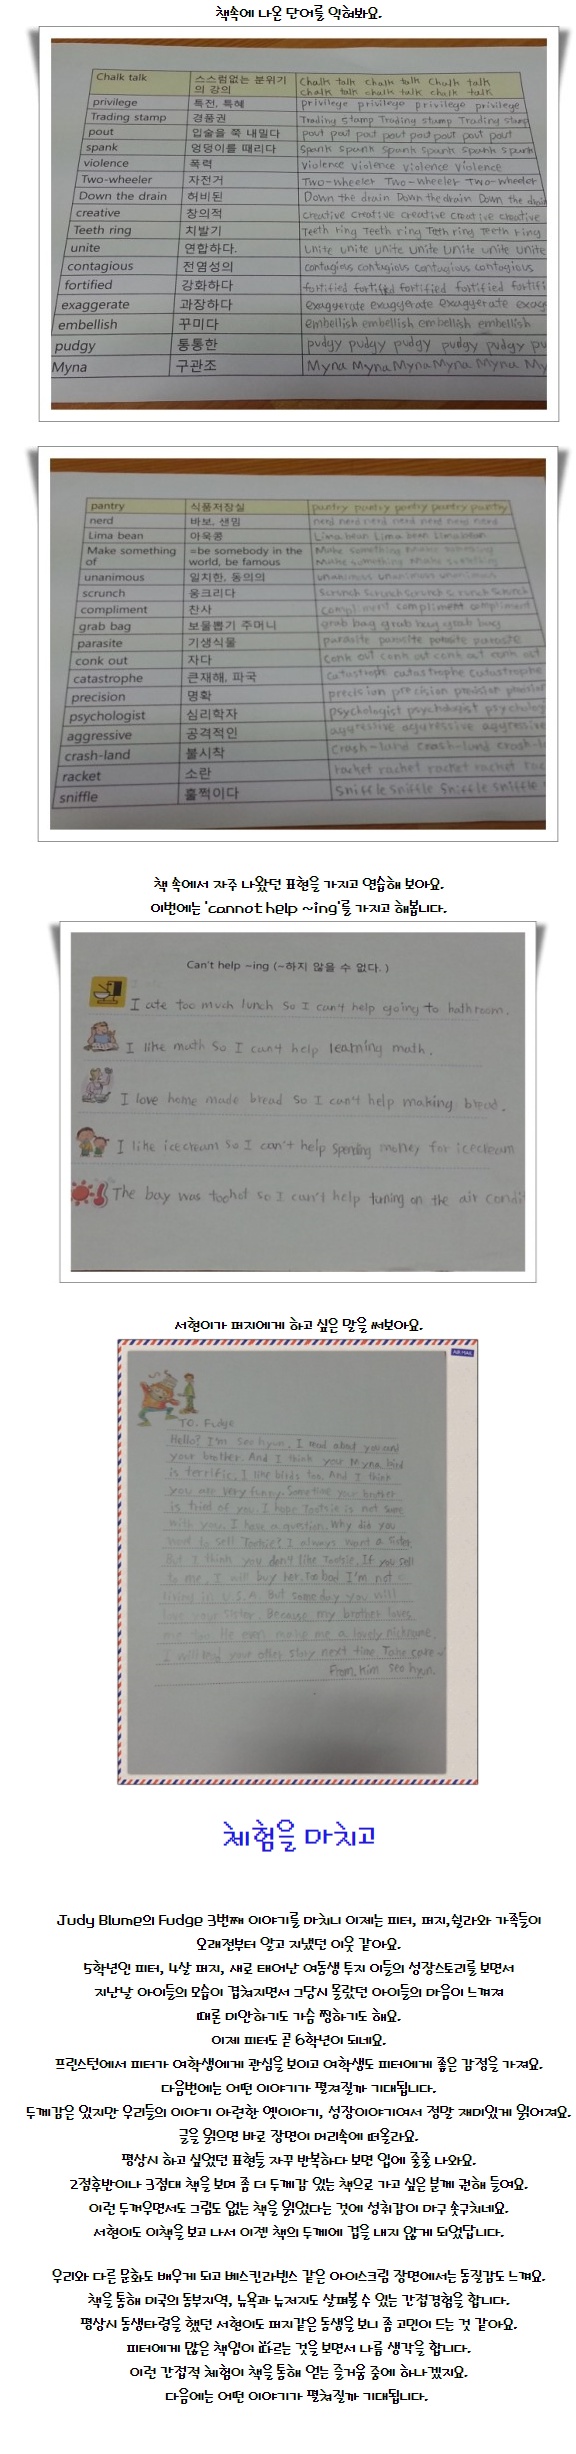 책속에 나온 단어를 익혀봐요.
Chalk talk 스스럼없는 분위기의 강의 Chalk talk chalk talk Chalk talk
chalk talk chalk talk chalk talk
privilege 특전, 특혜 privilege privilege privilege privilege
Trading stamp 경품권 Trading stamp Trading stamp Trading stamp
pout 입술을 쭉 내밀다 pout pout pout pout pout pout pout pout
spank 엉덩이를 때리다 spank spank spank spank spank spank
violence 폭력 violence violence violence violence
Two-wheeler 자전거 Two-wheeler Two-wheeler Two-wheeler
Down the drain 허비된 Down the drain Down the drain Down the drain
creative 창의적 creative creative creative creative creative
Teeth ring 치발기 Teeth ring Teeth ring Teeth ring Teeth ring
unite 연합하다. unite unite unite unite unite unite unite
contagious 전염성의 contagious contagious contagious contagious
fortified 강화하다 fortified fortified fortified fortified fortifi
exaggerate 과장하다 exaggerate exaggerate exaggerate exag
embellish 꾸미다 embellish embellish embellish embellish
pudgy 통통한 pudgy pudgy pudgy pudgy pudgy pu
Myna 구관조 Myna Myna Myna Myna Myna My
pantry 식품저장실 pantry pantry pantry pantry pantry
nerd 바보, 샌님 nerd nerd nerd nerd nerd nerd nerd
Lima bean 아욱콩 Lima bean Lima bean Lima bean
Make something of =be somebody in the world, be famous Make something Make something
Make something Make something
unanimous 일치한, 동의의 unanimous unanimous unanimous
scrunch 웅크리다 scrunch scrunch scrunch scrunch scrunch
compliment 찬사 compliment compliment compliment
grab bag 보물뽑기 주머니 grab bag grab bag grab bag
parasite 기생식물 parasite parasite parasite parasite
conk out 자다 conk out conk out conk out conk out
catastrophe 큰재해, 파국 catastrophe catastrophe catastrophe
precision 명확 precision precision precision precision
psychologist 심리학자 psychologist psychologist psycholog
aggressive 공격적인 aggressive aggressive aggressive
crash-land 불시착 crash-land crash-land crash-l
racket 소란 racket racket racket racket rac
sniffle 훌쩍이다 sniffle sniffle sniffle sniffle
책 속에서 자주 나왔던 표현을 가지고 연습해 보아요.
이번에는 'cannot help ~ing'를 가지고 해봅니다.
Can't help ~ing (~하지 않을 수 없다. )
I ate too much lunch so I can't help going to bathroom.
I like math so I can't help learning math.
I love home made bread so I can't help making bread.
I like icecream so I can't help spending money for icecream
The bay was toohot so I can't help tuning on the air condi
서현이가 퍼지에게 하고 싶은 말을 써보아요.
AIR MAIL
TO. Fudge
Hello? I'm Seo hyun. I read about you and
your brother. And I think your Myna bird
is terrific. I like birds too. And I think
you are very funny. Sometime your brother
is tried of you. I hope Tootsie is not same
with you. I have a question. Why did you
want to sell Tootsie? I always want a sister.
But I think you don't like Tootsie. If you sell
to me, I will buy her. Too bad I'm not
living in U.S.A. But someday you will
love your sister. Because my brother loves
me too. He even make me a lovely nickname.
I will read your other story next time. Take care
From. Kim Seo hyun.
체험을 마치고
Judy Blume의 Fudge 3번째 이야기를 마치니 이제는 피터, 퍼지,쉴라와 가족들이
오래전부터 알고 지냈던 이웃 같아요.
5학년인 피터, 4살 퍼지, 새로 태어난 여동생 투치 이들의 성장스토리를 보면서
지난날 아이들의 모습이 겹쳐지면서 그당시 몰랐던 아이들의 마음이 느껴져
때론 미안하기도 가슴 찡하기도 해요.
이제 피터도 곧 6학년이 되네요.
프린스턴에서 피터가 여학생에게 관심을 보이고 여학생도 피터에게 좋은 감정을 가져요.
다음번에는 어떤 이야기가 펼쳐질까 기대됩니다.
두께감은 있지만 우리들의 이야기 아련한 옛이야기, 성장이야기여서 정말 재미있게 읽어져요.
글을 읽으면 바로 장면이 머리속에 떠올라요.
평상시 하고 싶었던 표현들 자꾸 반복하다 보면 입에 줄줄 나와요.
2점후반이나 3점대 책을 보며 좀 더 두께감 있는 책으로 가고 싶은 분께 권해 들여요.
이런 두꺼우면서도 그림도 없는 책을 읽었다는 것에 성취감이 마구 솟구치네요.
서현이도 이책을 보고 나서 이젠 책의 두께에 겁을 내지 않게 되었답니다.
우리와 다른 문화도 배우게 되고 베스킨라빈스 같은 아이스크림 장면에서는 동질감도 느껴요.
책을 통해 미국의 동부지역, 뉴욕과 뉴저지도 살펴볼 수 있는 간접경험을 합니다.
평상시 동생타령을 했던 서현이도 퍼지같은 동생을 보니 좀 고민이 드는 것 같아요.
피터에게 많은 책임이 따르는 것을 보면서 나름 생각을 합니다.
이런 간접적 체험이 책을 통해 얻는 즐거움 중에 하나겠지요.
다음에는 어떤 이야기가 펼쳐질까 기대됩니다.